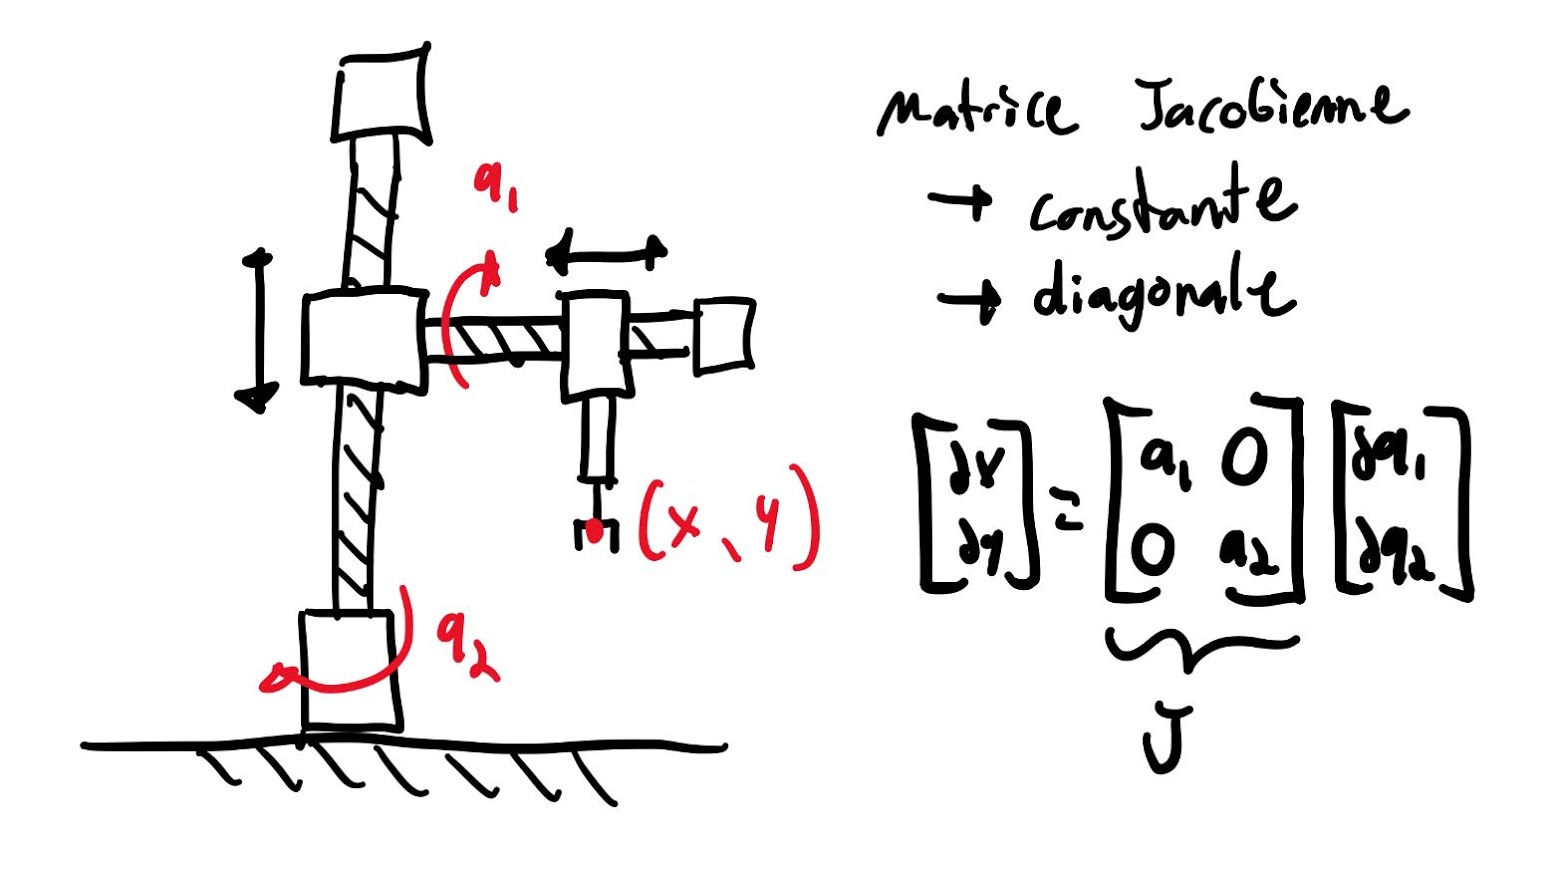 q₁
Matrice Jacobienne
→ constante
→ diagonale
(x, y)
[∂x ∂y] = [a₁ 0 0 a₂] [∂q₁ ∂q₂]
q₂
J